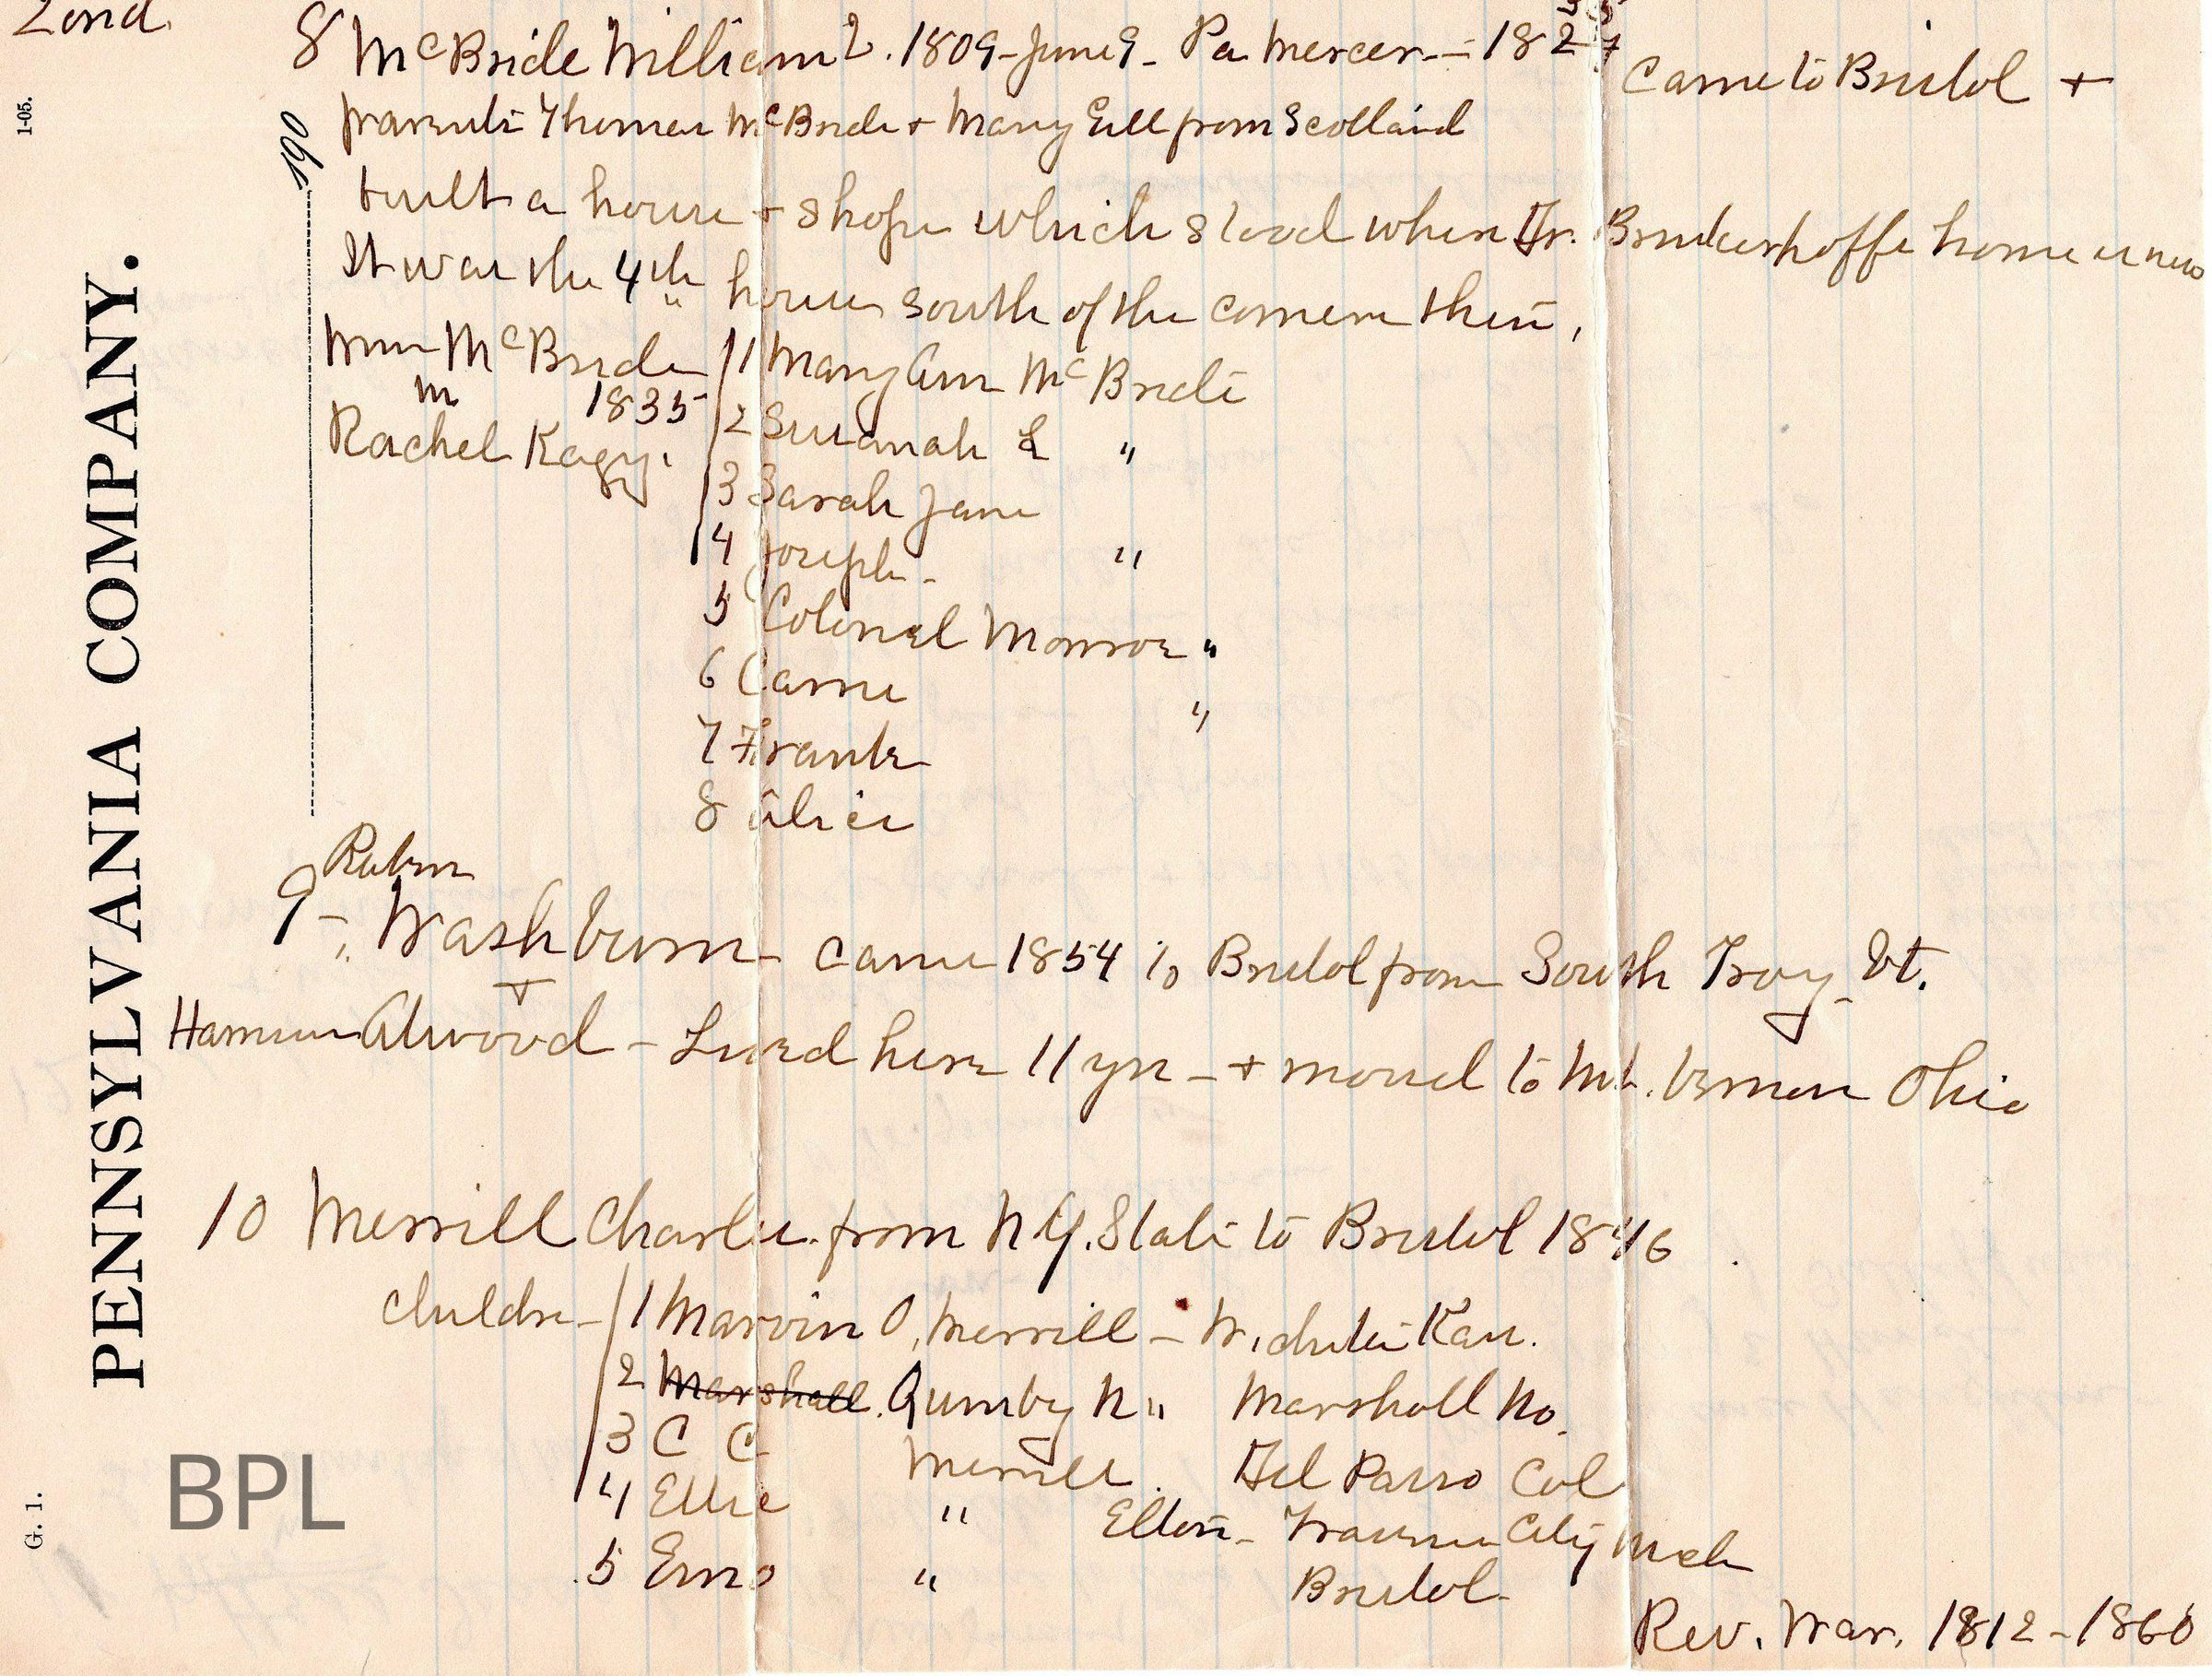 2ond
8 McBride William 2. 1809 - June 9 - Pa Mercer - = 18 Came to Bristol +
parents Thomas McBride + Mary Gill from Scotland
built a house + shop which stood where Dr. home is now
It was the 4th house south of the corners then,
Wm McBride 11 Mary Ann McBride
m 1835
Rachel Kagy. 2 Susanah L "
3 Sarah Jane
4 Joseph - "
5 Colonel Monroe "
6 Carrie "
7 Frank
8 Alice
Rubin
9 - Washburn - came 1854 to Bristol from South Troy Vt.
+
Atwood - Lived here 11 yrs - + moved to Mt. Vernon Ohio
10 Merrill Charles from N Y. State to Bristol 1846
children - 1 Marvin O. Merrill - Wichita Kan.
2 Marshall. Qumby N " Marshall Mo.
3 C C Merrill. Del Passo Col
4 Ellie " - Traverse City Mich
5 " Bristol
Rev. War. 1812 - 1860
PENNSYLVANIA COMPANY.
1-05.
G. 1.
BPL